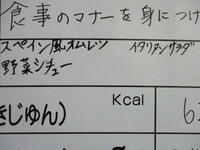 食事のマナーを身につけ
スペイン風オムレツ　イタリアンサラダ
野菜シチュー
Kcal
きじゅん)